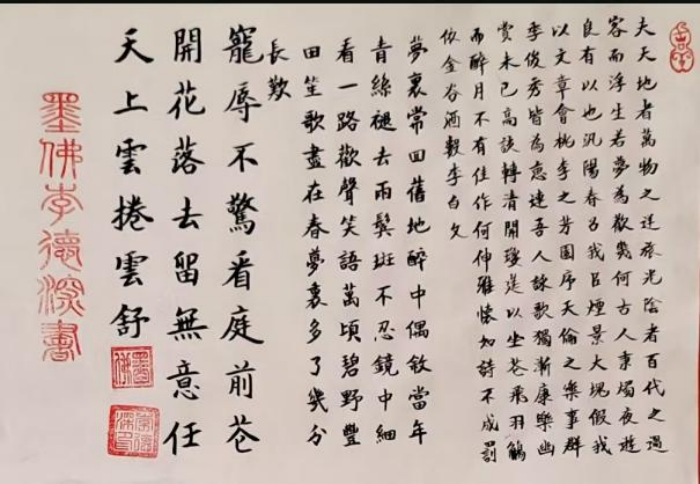 夫天地者萬物之逆旅光陰者百代之過
客而浮生若夢為歡幾何古人秉燭夜遊
良有以也況陽春召我以煙景大塊假我
以文章會桃李之芳園序天倫之樂事群
季俊秀皆為惠連吾人詠歌獨慚康樂幽
賞未已高談轉清開瓊筵以坐花飛羽觴
而醉月不有佳作何伸雅懷如詩不成罰
依金谷酒數李白文
夢裏常回舊地醉中偶敘當年
青絲褪去兩鬢斑不忍鏡中細
看一路歡聲笑語萬頃碧野豐
田笙歌盡在春夢裏多了幾分
長歎
寵辱不驚看庭前花
開花落去留無意任
天上雲捲雲舒
墨佛李德深書
墨佛
李德深印